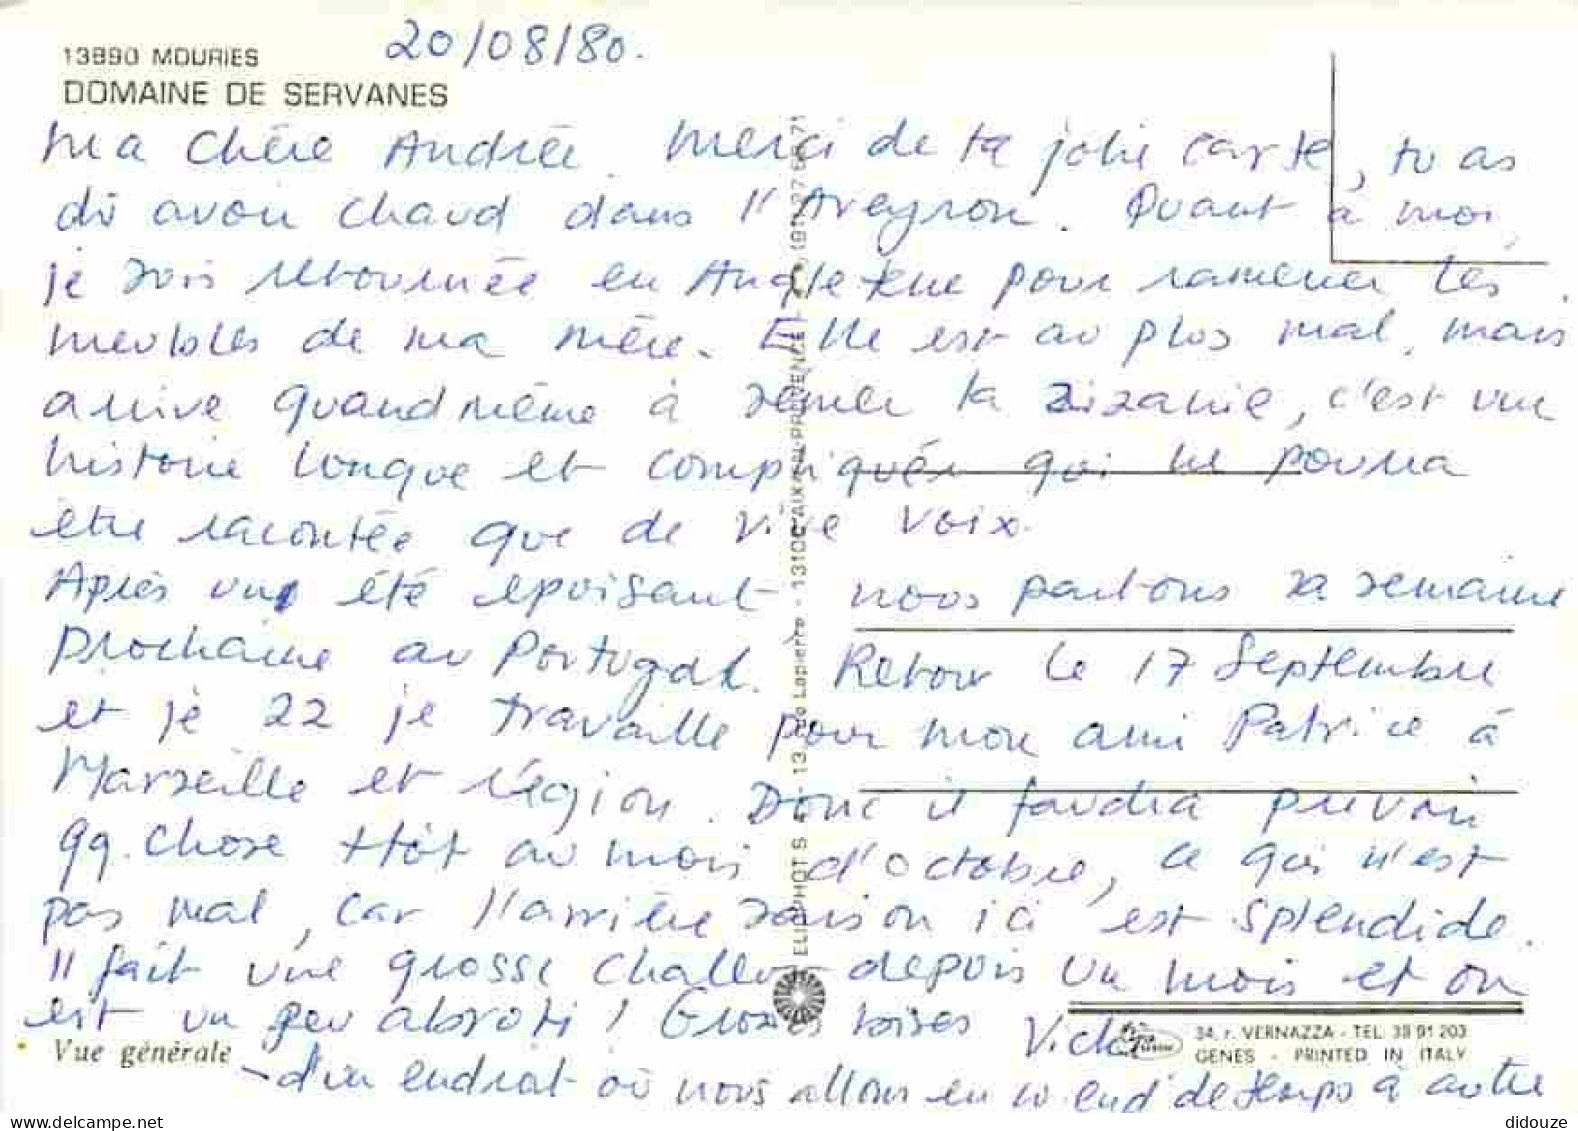 20/08/80.
13890 MOURIES
DOMAINE DE SERVANES
Ma Chère Andrée. Merci de ta jolie carte, tu as
dû avoir chaud dans l'Aveyron. Quant à moi,
je suis retournée en Angleterre pour ramener les
meubles de ma mère. Elle est au plus mal, mais
arrive quand même à semer la zizanie, c'est une
histoire longue et compliquée qui ne pourra
être racontée que de vive voix.
Après un été epuisant nous partons la semaine
prochaine au Portugal. Retour le 17 Septembre
et le 22 je travaille pour mon ami Patrice à
Marseille et région. Donc il faudra prevoir
qq. chose + tôt au mois d'octobre, ce qui n'est
pas mal, car l'arrière saison ici est splendide.
Il fait une grosse chaleur depuis un mois et on
est un peu abruti! Grosses bises Vicki
Vue générale
- d'un endroit où nous allons en w end de temps à autre
ELIOPHOT S.A. - 13, rue Lapierre - 13100 AIX-EN-PROVENCE
34, r. VERNAZZA - TEL. 39 91 203
GENES - PRINTED IN ITALY
didouze